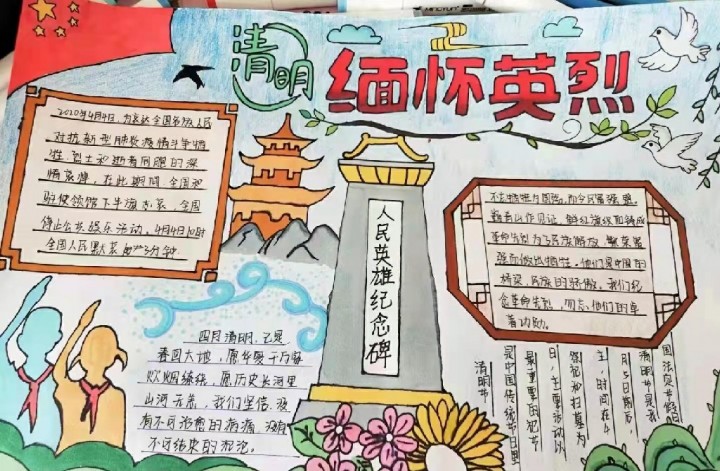 清明
缅怀英烈
2020年4月4日，为表达全国各族人民
对抗新型肺炎疫情斗争牺
牲烈士和逝者同胞的深
情哀悼，在此期间，全国和
驻使领馆下半旗志哀，全国
停止公共娱乐活动，4月4日10时
全国人民默哀3分钟
人民英雄纪念碑
四月清明，已是
春回大地，愿华夏千万家
炊烟缭绕，愿历史长河里
山河无恙，我们坚信，没
有不可治愈的病痛，没有
不可结束的
为国
革命先烈为了民族解放，繁荣富
强而做出牺牲。他们是中国的
桥梁，民族的骄傲。我们纪
念革命先烈，勿忘他们的卓
著功勋。
国法定节假日
清明节是我
月5日前后，
主，时间在4
祭祀和扫墓为
日，主要活动以
最重要的祀节
是中国传统节日里
清明节